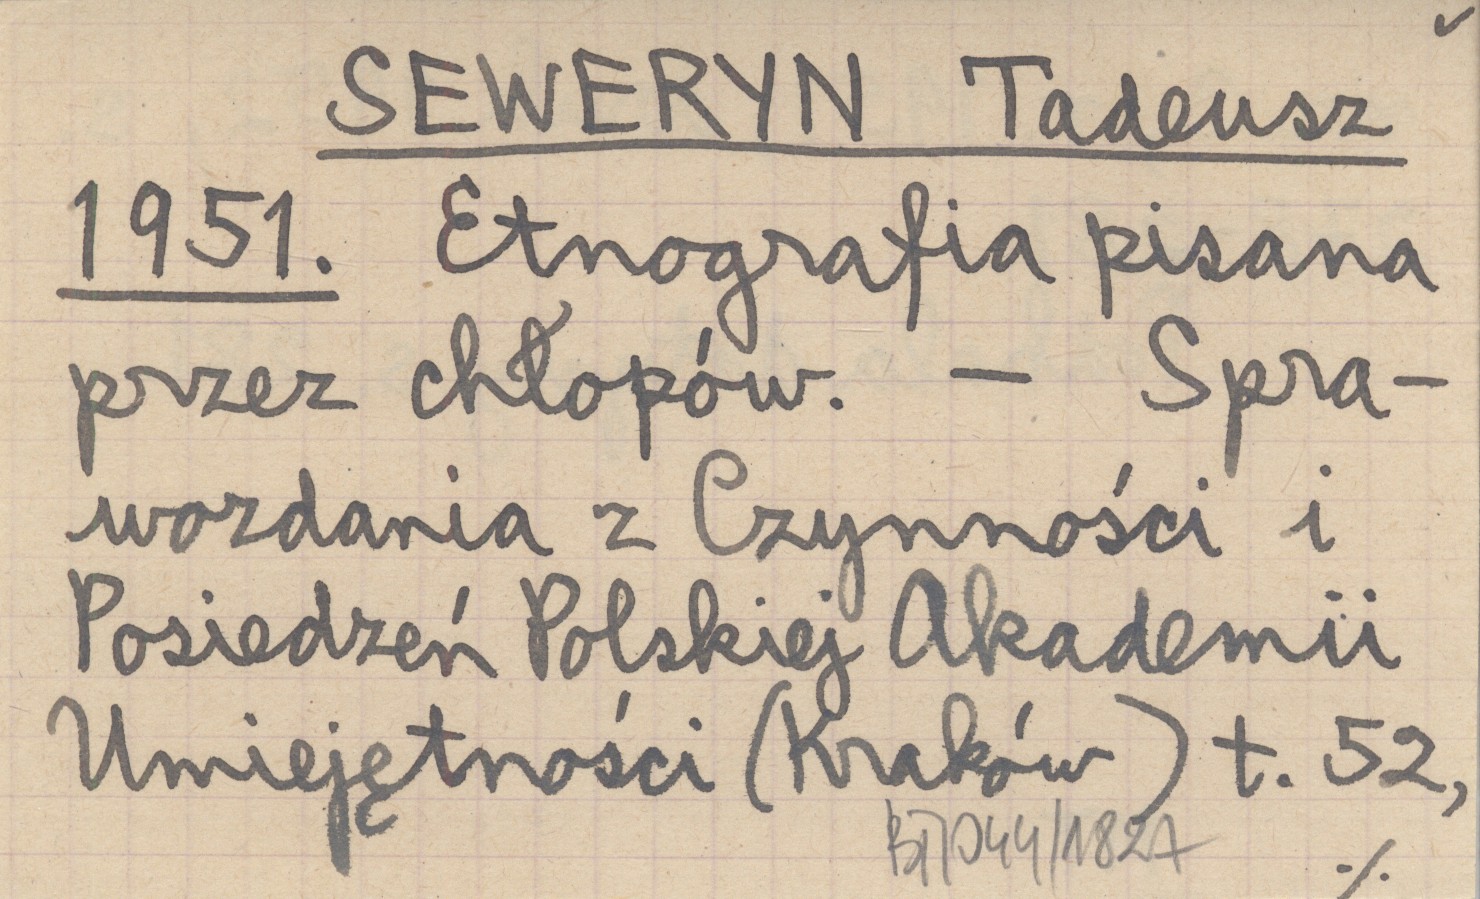 SEWERYN Tadeusz
1951. Etnografia pisana
przez chłopów. — Spra-
wozdania z Czynności i
Posiedzeń Polskiej Akademii
Umiejętności (Kraków) t. 52,
./.